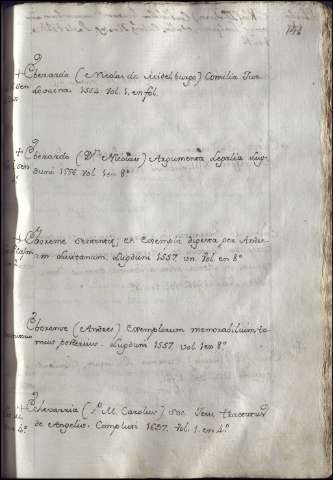 Eberardo (Nicolas de Meidelburgo) Consilia Jur
Lovaina. 1554. Vol. 1. en fol.
Eberardo (Dn Nicolau) Argumenta Legalia Lug
duni 1556. Vol. 1 en 8º
Eborense Sententie, et Exempla digesta per Andre
m Lusitanum. Lugduni 1557. un. Vol. en 8º
Eborense (Andres) Exemplorum memorabilium, to
mus posterius. Lugduni 1557. vol. 1 en 8º
Echevarria (P. M. Carolus) Soc. Jesu tractatus
de Angelis. Compluti 1657. Vol. 1. en 4º